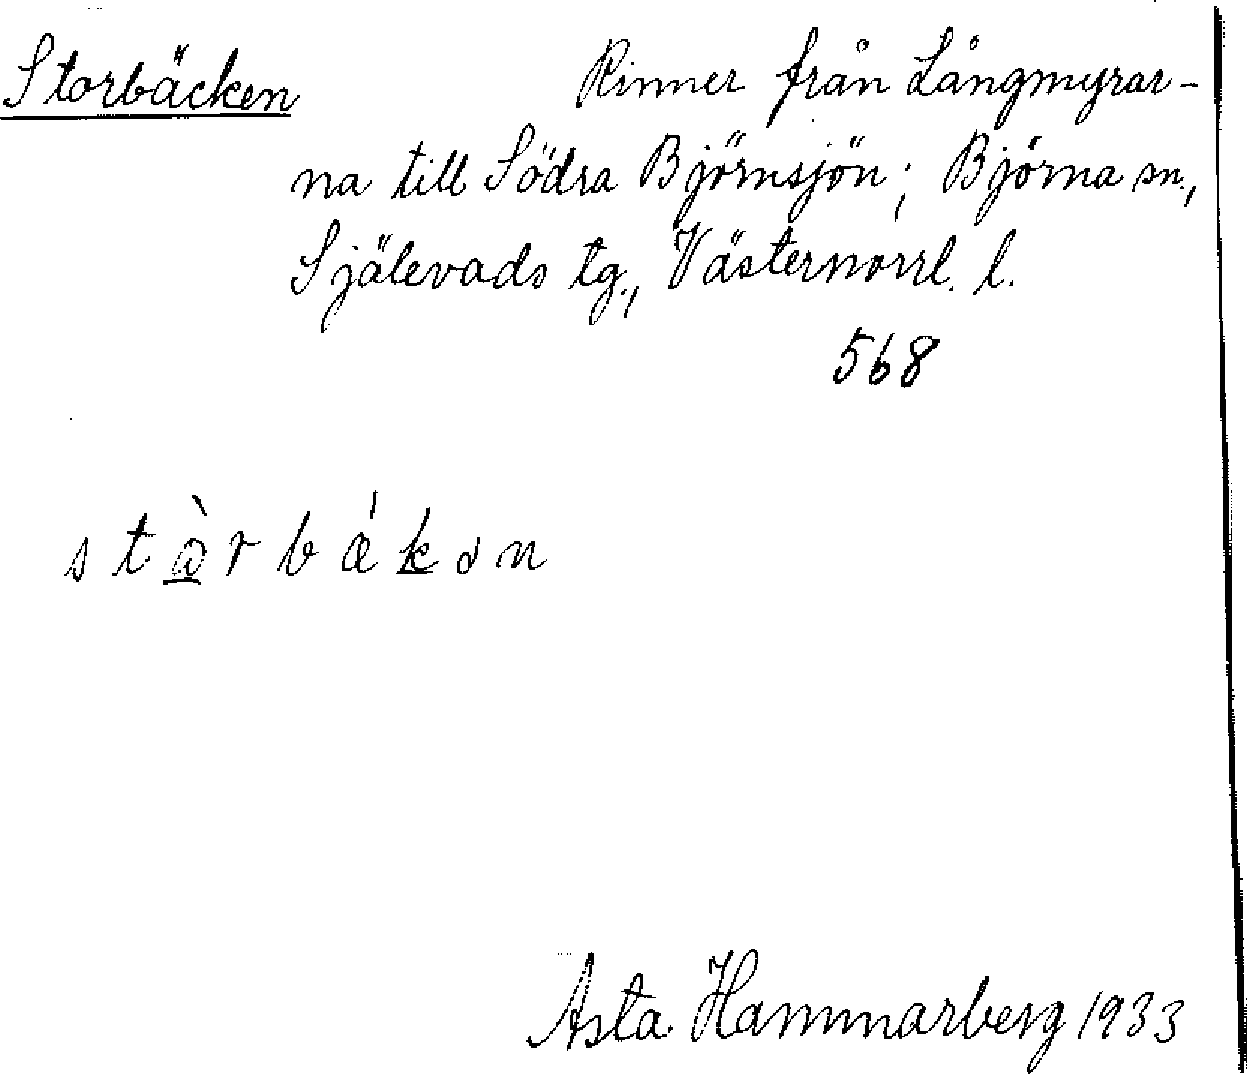 Storbäcken Rinner från Långmyrar-
na till Södra Björnsjön; Björna sn.,
Själevads tg., Västernorrl. l.
568
Asta Hammarberg 1933